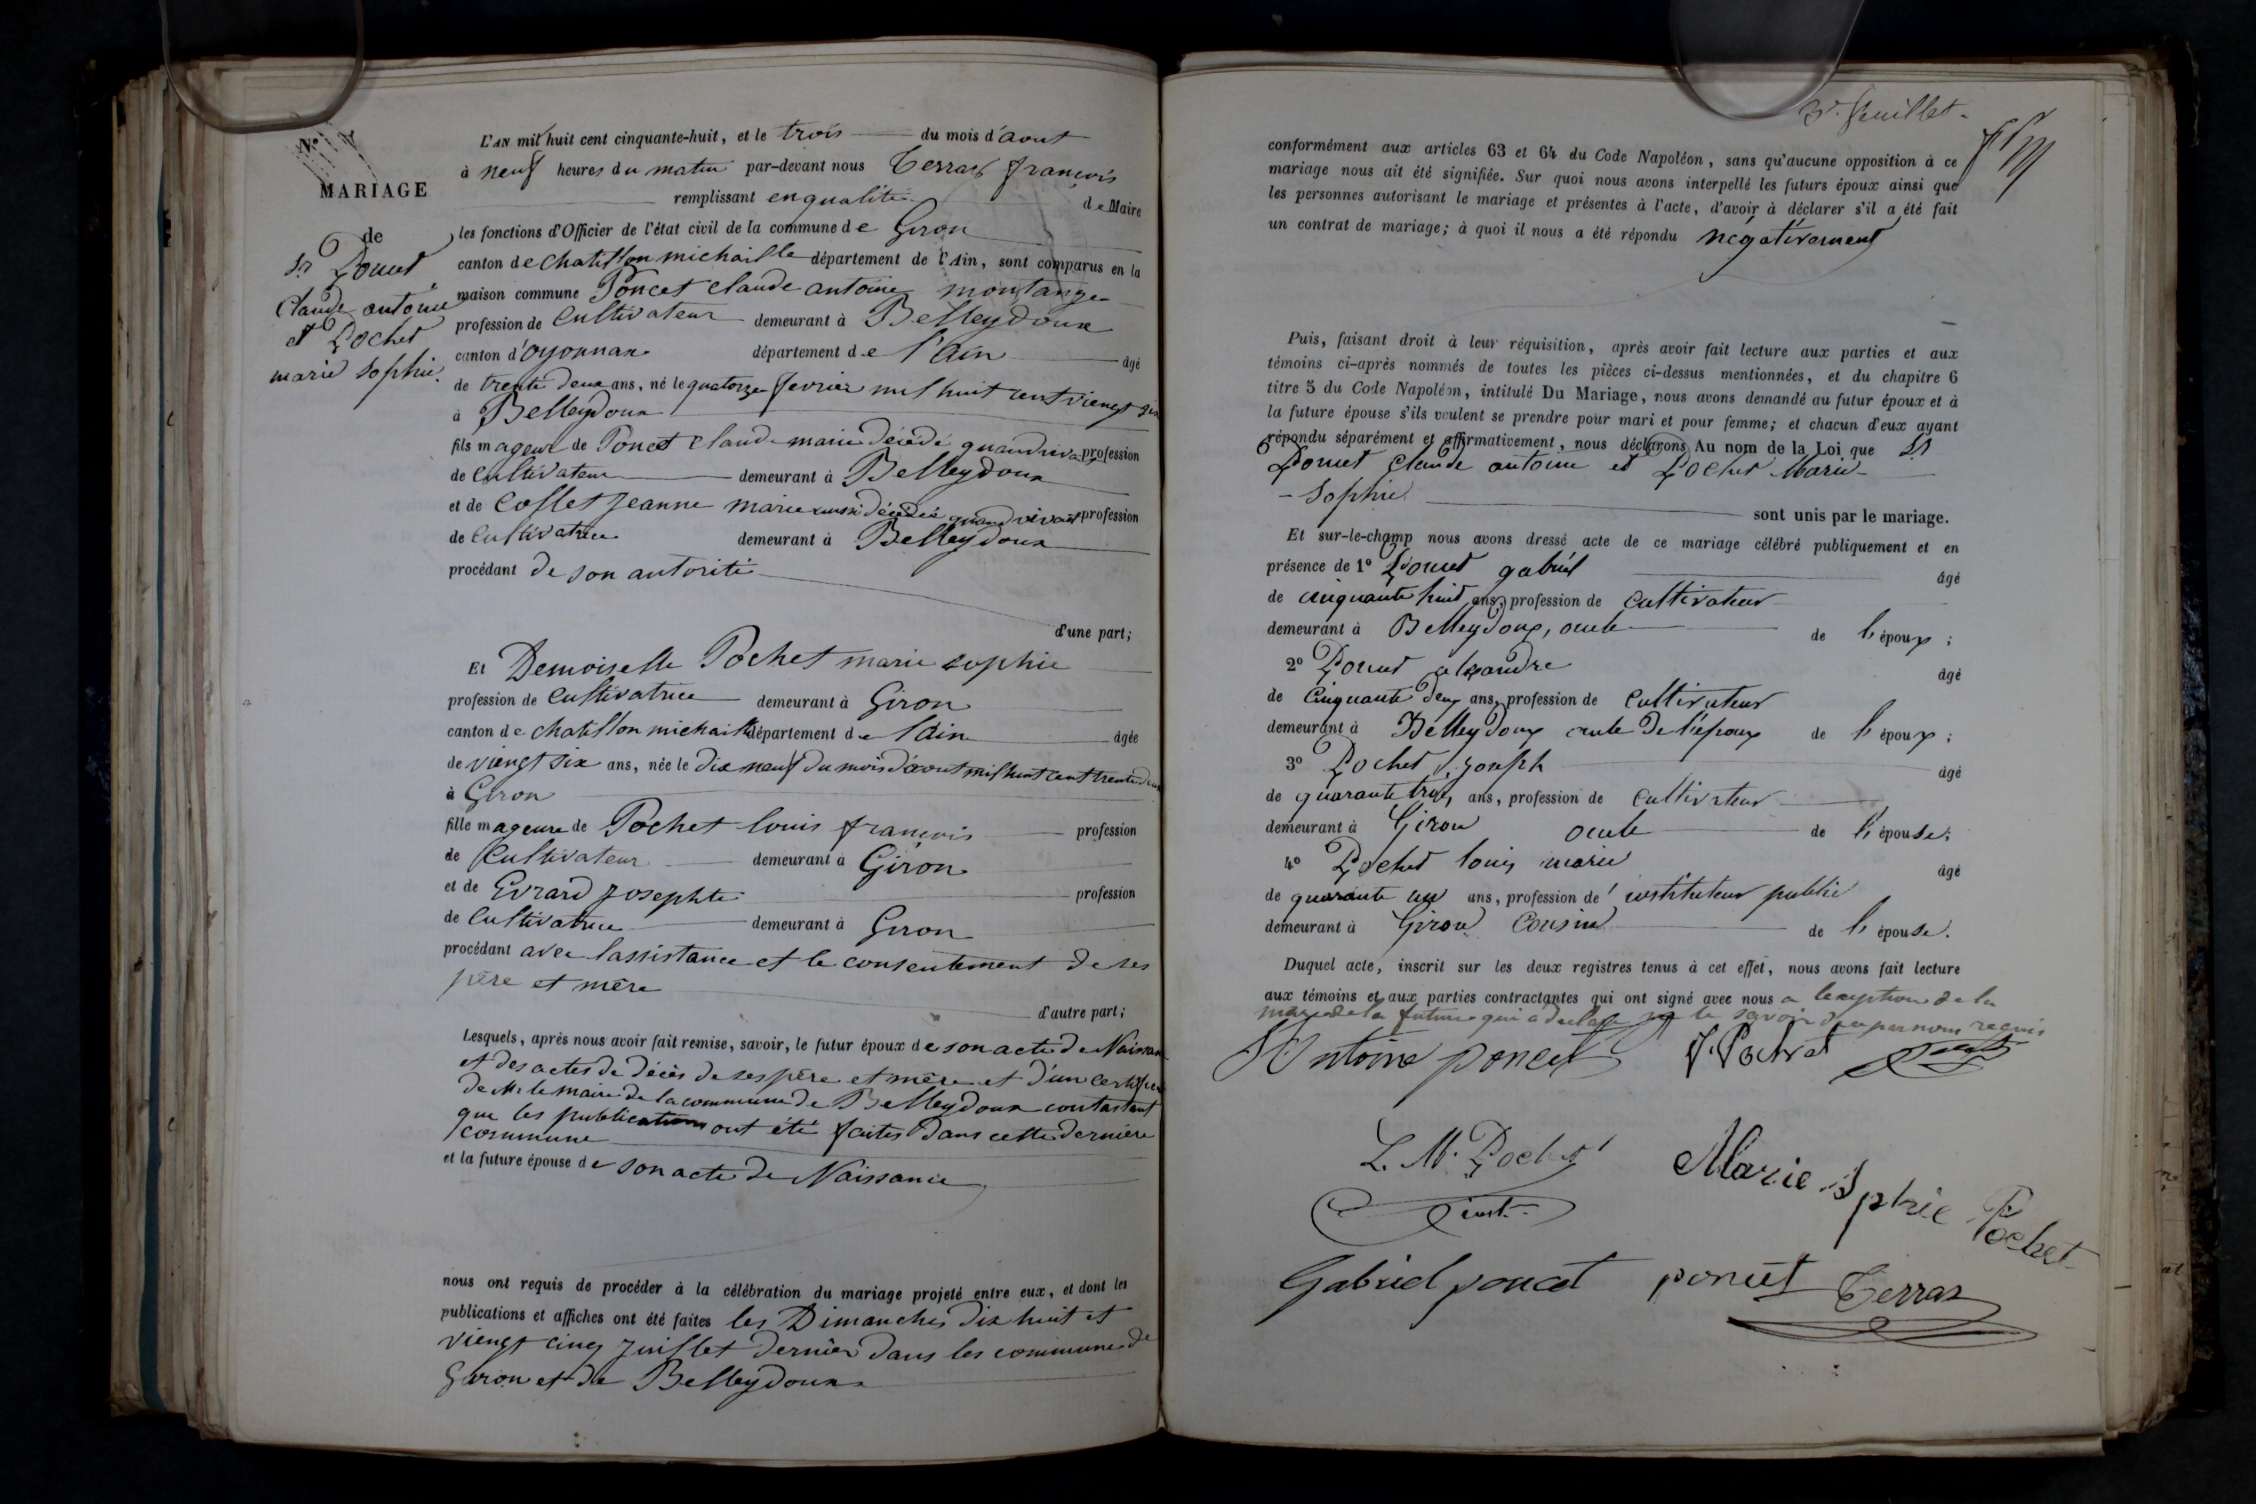 N.° V
MARIAGE
de
Sr Poncet
Claude antoine
et Pochet
marie sophie.
L'AN mil huit cent cinquante-huit, et le trois du mois d'aout
à neuf heures du matin par-devant nous Terraz françois
remplissant en qualité de Maire
les fonctions d'Officier de l'état civil de la commune de Giron
canton de chatillon michaille département de l'Ain, sont comparus en la
maison commune Poncet claude antoine montange
profession de Cultivateur demeurant à Belleydoux
canton d'oyonnax département de l'Ain âgé
de trente deux ans, né le quatorze fevrier mil huit cent viengt six
à Belleydoux
fils mageur de Poncet claude marie décédé quand vivait profession
de Cultivateur demeurant à Belleydoux
et de Collet jeanne marie aussi décédée quand vivait profession
de Cultivatrice demeurant à Belleydoux
procédant de son autorité
d'une part;
Et Demoiselle Pochet marie sophie
profession de Cultivatrice demeurant à Giron
canton de chatillon michaille département de l'ain âgée
de viengt six ans, née le dix neuf du mois d'aout mil huit cent trente deux
à Giron
fille mageure de Pochet louis françois profession
de Cultivateur demeurant à Giron
et de Evrard josephte profession
de Cultivatrice demeurant à Giron
procédant avec lassistance et le consentement de ses
père et mère
d'autre part;
Lesquels, après nous avoir fait remise, savoir, le futur époux de son acte de Naissance
et des actes de décès de ses père et mère et d'un certificat
de Mr le maire de la commune de Belleydoux constatant
que les publications ont été faites dans cette dernière
commune
et la future épouse de son acte de Naissance
nous ont requis de procéder à la célébration du mariage projeté entre eux, et dont les
publications et affiches ont été faites les Dimanches dix huit et
viengt cinq juillet dernier dans les communes de
Giron et de Belleydoux
3e feuillet.
conformément aux articles 63 et 64 du Code Napoléon, sans qu'aucune opposition à ce
mariage nous ait été signifiée. Sur quoi nous avons interpellé les futurs époux ainsi que
les personnes autorisant le mariage et présentes à l'acte, d'avoir à déclarer s'il a été fait
un contrat de mariage; à quoi il nous a été répondu négativement
Puis, faisant droit à leur réquisition, après avoir fait lecture aux parties et aux
témoins ci-après nommés de toutes les pièces ci-dessus mentionnées, et du chapitre 6
titre 5 du Code Napoléon, intitulé Du Mariage, nous avons demandé au futur époux et à
la future épouse s'ils veulent se prendre pour mari et pour femme; et chacun d'eux ayant
répondu séparément et affirmativement, nous déclarons Au nom de la Loi que Sr
Poncet Claude antoine et Pochet Marie
- Sophie sont unis par le mariage.
Et sur-le-champ nous avons dressé acte de ce mariage célébré publiquement et en
présence de 1° Poncet gabriel âgé
de cinquante huit ans, profession de cultivateur
demeurant à Belleydoux, oncle de l'époux;
2° Poncet alexandre âgé
de cinquante deux ans, profession de cultivateur
demeurant à Belleydoux oncle de l'époux de l'époux;
3° Pochet, joseph âgé
de quarante trois ans, profession de cultivateur
demeurant à Giron oncle de l'épouse;
4° Pochet louis marie âgé
de quarante un ans, profession d'instituteur public
demeurant à Giron Cousin de l'épouse.
Duquel acte, inscrit sur les deux registres tenus à cet effet, nous avons fait lecture
aux témoins et aux parties contractantes qui ont signé avec nous a lexeption de la
mère de la future qui a declaré ne le savoir de ce par nous requis
Antoine poncet J. Pochet
L. M. Pochet Marie Sophie Pochet
Gabriel poncet poncet Terraz